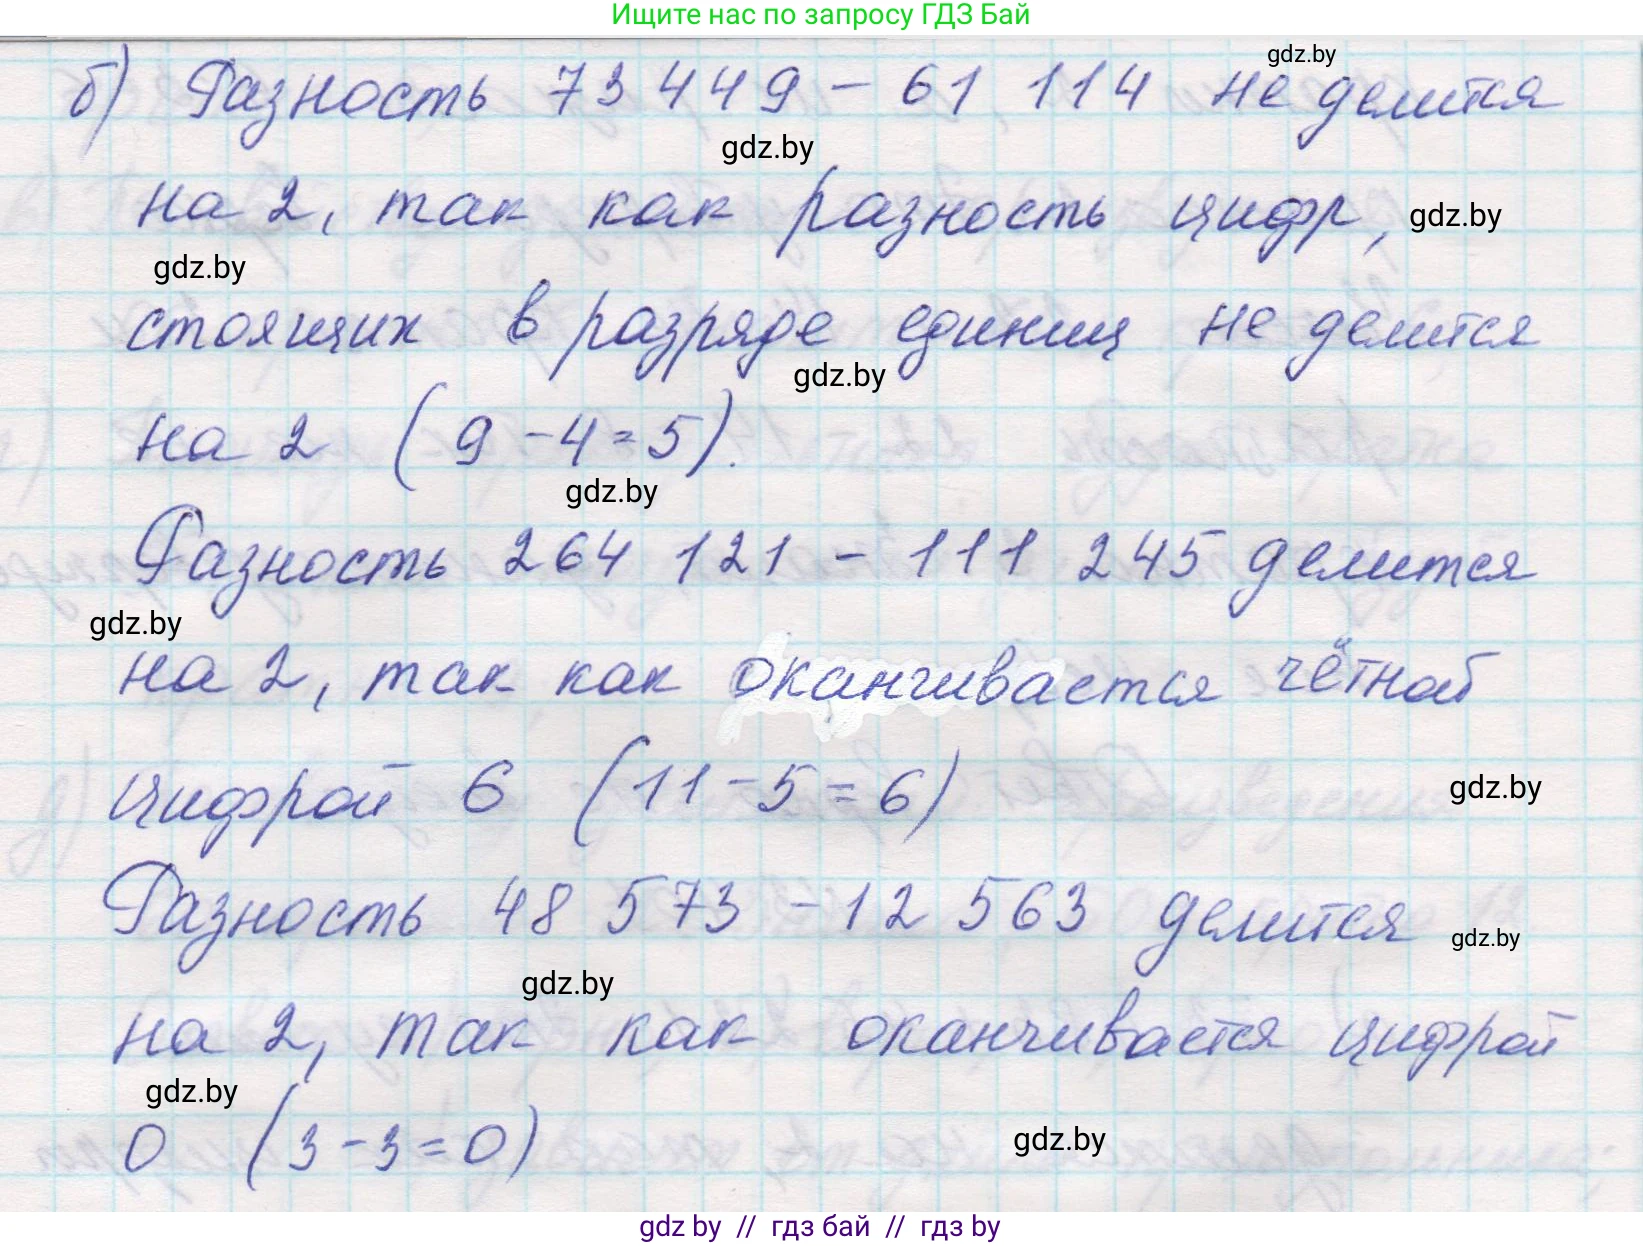 Ищите нас по запросу ГДЗ Бай
gdz.by
б) Разность 73 449 - 61 114 не делится
gdz.by
на 2, так как разность цифр,
gdz.by
gdz.by
стоящих в разряде единиц не делится
gdz.by
на 2 (9 - 4 = 5).
gdz.by
Разность 264 121 - 111 245 делится
gdz.by
на 2, так как оканчивается чётной
цифрой 6 (11 - 5 = 6)
gdz.by
Разность 48 573 - 12 563 делится
gdz.by
gdz.by
на 2, так как оканчивается цифрой
gdz.by
0 (3 - 3 = 0)
gdz.by
gdz by // гдз бай // гдз by